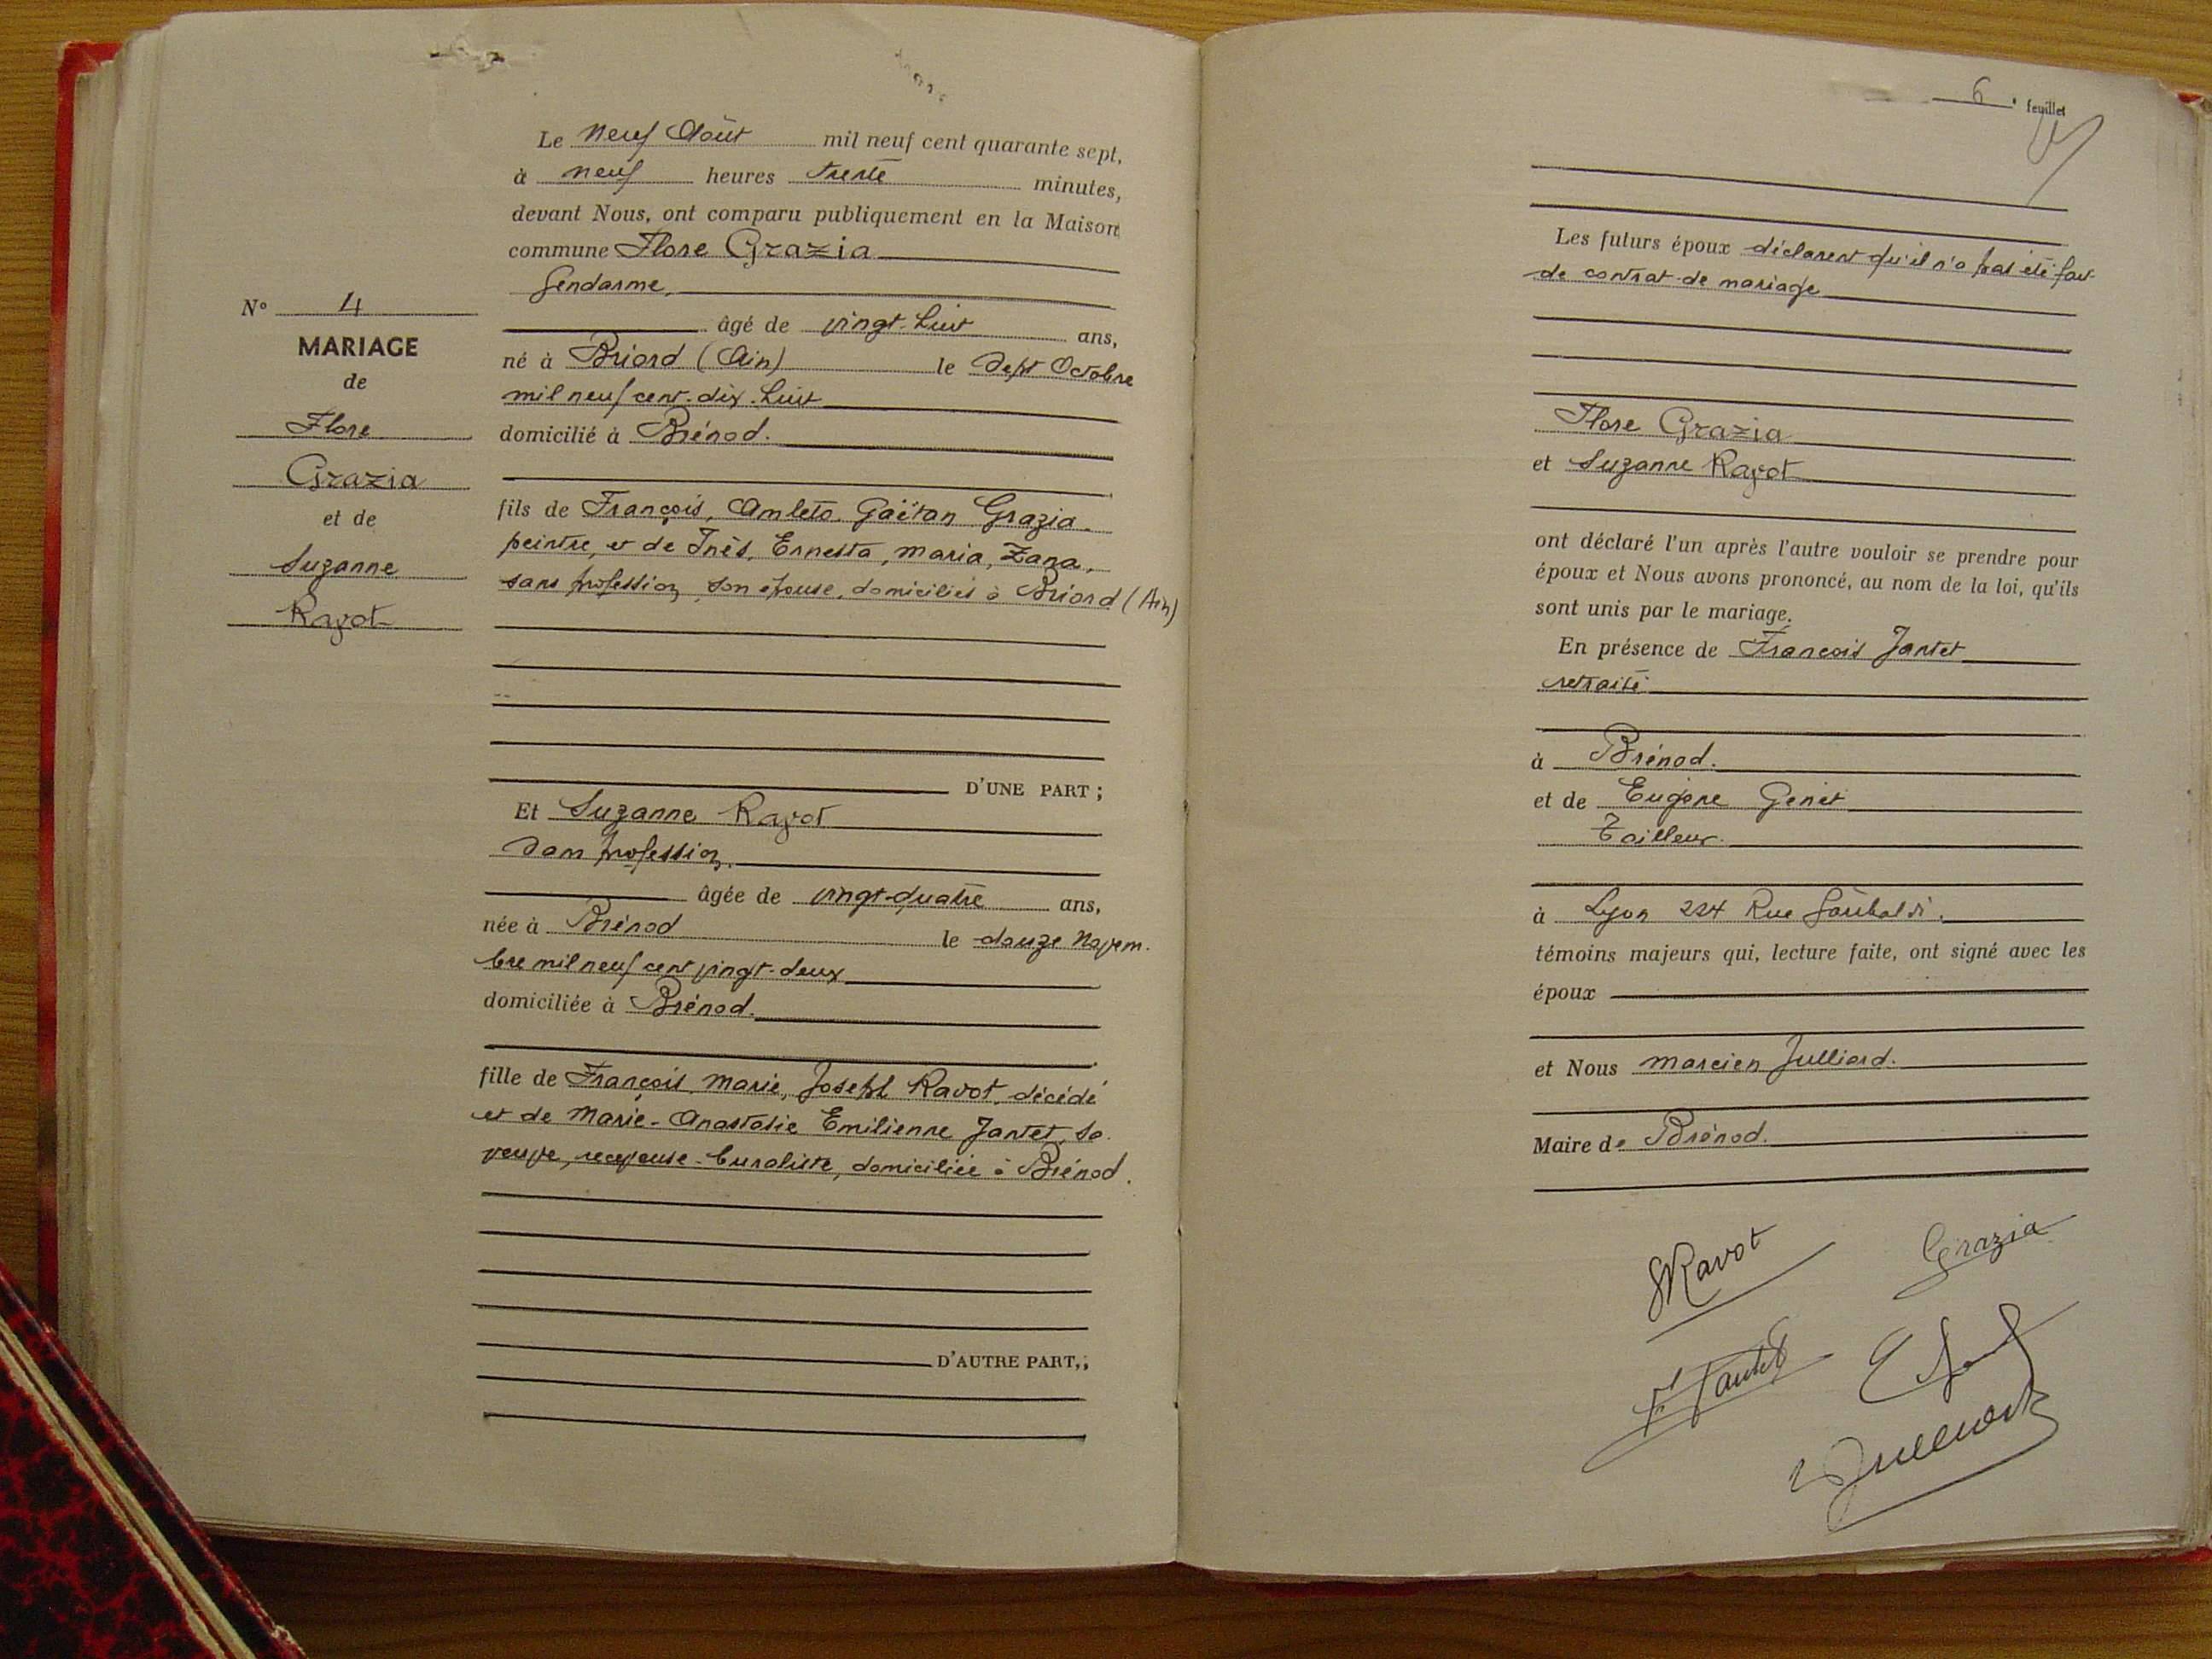 Le neuf Août mil neuf cent quarante sept,
à neuf heures trente minutes,
devant Nous, ont comparu publiquement en la Maison
commune Flore Grazia
Gendarme,
âgé de vingt-huit ans,
né à Briord (Ain) le Sept Octobre
mil neuf cent-dix-huit
domicilié à Brénod.
fils de François, Amleto, Gaëtan Grazia.
peintre, et de Inès, Ernesta, Maria, Zana,
sans profession, son épouse, domiciliés à Briord (Ain)
D'UNE PART ;
N° 4
MARIAGE
de
Flore
Grazia
et de
Suzanne
Ravot
Et Suzanne Ravot
Sans profession.
âgée de vingt-quatre ans,
née à Brénod le douze Novem-
bre mil neuf cent vingt-deux
domiciliée à Brénod.
fille de François, Marie, Joseph Ravot, décédé
et de Marie-Anastasie Emilienne Jantet, sa
veuve, receveuse-buraliste, domiciliée à Brénod.
D'AUTRE PART,;
6 e feuillet
Les futurs époux déclarent qu'il n'a pas été fait
de contrat de mariage
Flore Grazia
et Suzanne Ravot
ont déclaré l'un après l'autre vouloir se prendre pour
époux et Nous avons prononcé, au nom de la loi, qu'ils
sont unis par le mariage.
En présence de François Jantet
retraité
à Brénod.
et de Eugène Genet
Tailleur.
à Lyon 224 Rue Garibaldi.
témoins majeurs qui, lecture faite, ont signé avec les
époux
et Nous Marcien Julliard.
Maire de Brénod.
SRavot
Grazia
F. Jantet
Julliard